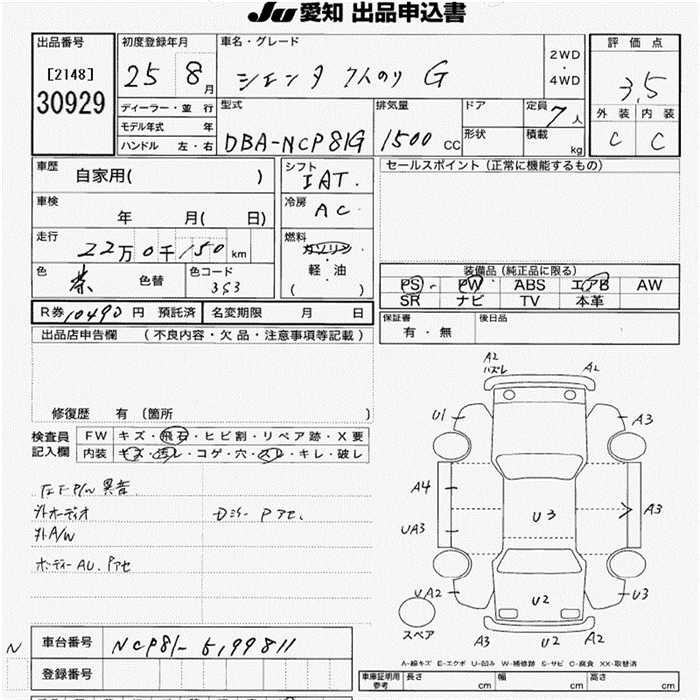 JU 愛知 出品申込書
出品番号 初度登録年月 車名・グレード 2WD ・ 4WD 評価点
[2148] 30929 25 8月 シエンタ 7人のり G 3.5
ディーラー・並行 型式 排気量 ドア 定員 7人 外装 内装
モデル年式 年 DBA-NCP81G 1500 CC 形状 積載 kg C C
ハンドル 左・右
車歴 自家用( ) シフト IAT. セールスポイント (正常に機能するもの)
車検 年 月( 日) 冷房 AC
走行 22万0千150km 燃料 ガソリン ・ 軽油 ( )
色 紫 色替 色コード 3S3
装備品 (純正品に限る)
PS PW ABS エアB AW
SR ナビ TV 本革
R券 10490 円 預託済 名変期限 月 日 保証書 有・無 後日品
出品店申告欄 (不良内容・欠品・注意事項等記載)
修復歴 有 (箇所 )
検査員記入欄 FW キズ・飛石・ヒビ割・リペア跡・X要
内装 キズ・汚レ・コゲ・穴・スレ・キレ・破し
左F P/W 異音
外オーディオ Dミラー Pアセ.
外A/W
ボディーAU. Pアセ
A2 ハズレ A2
U1 A3
A4 U3 A3
UA3
UA2 U2 U3
スペア A3 U2 A2
A-線キズ E-エクボ U-凹み W-補修跡 S-サビ C-腐食 XX-取替済
N 車台番号 NCP81-5199811
登録番号
車庫証明用参考 長さ cm 幅 cm 高さ cm